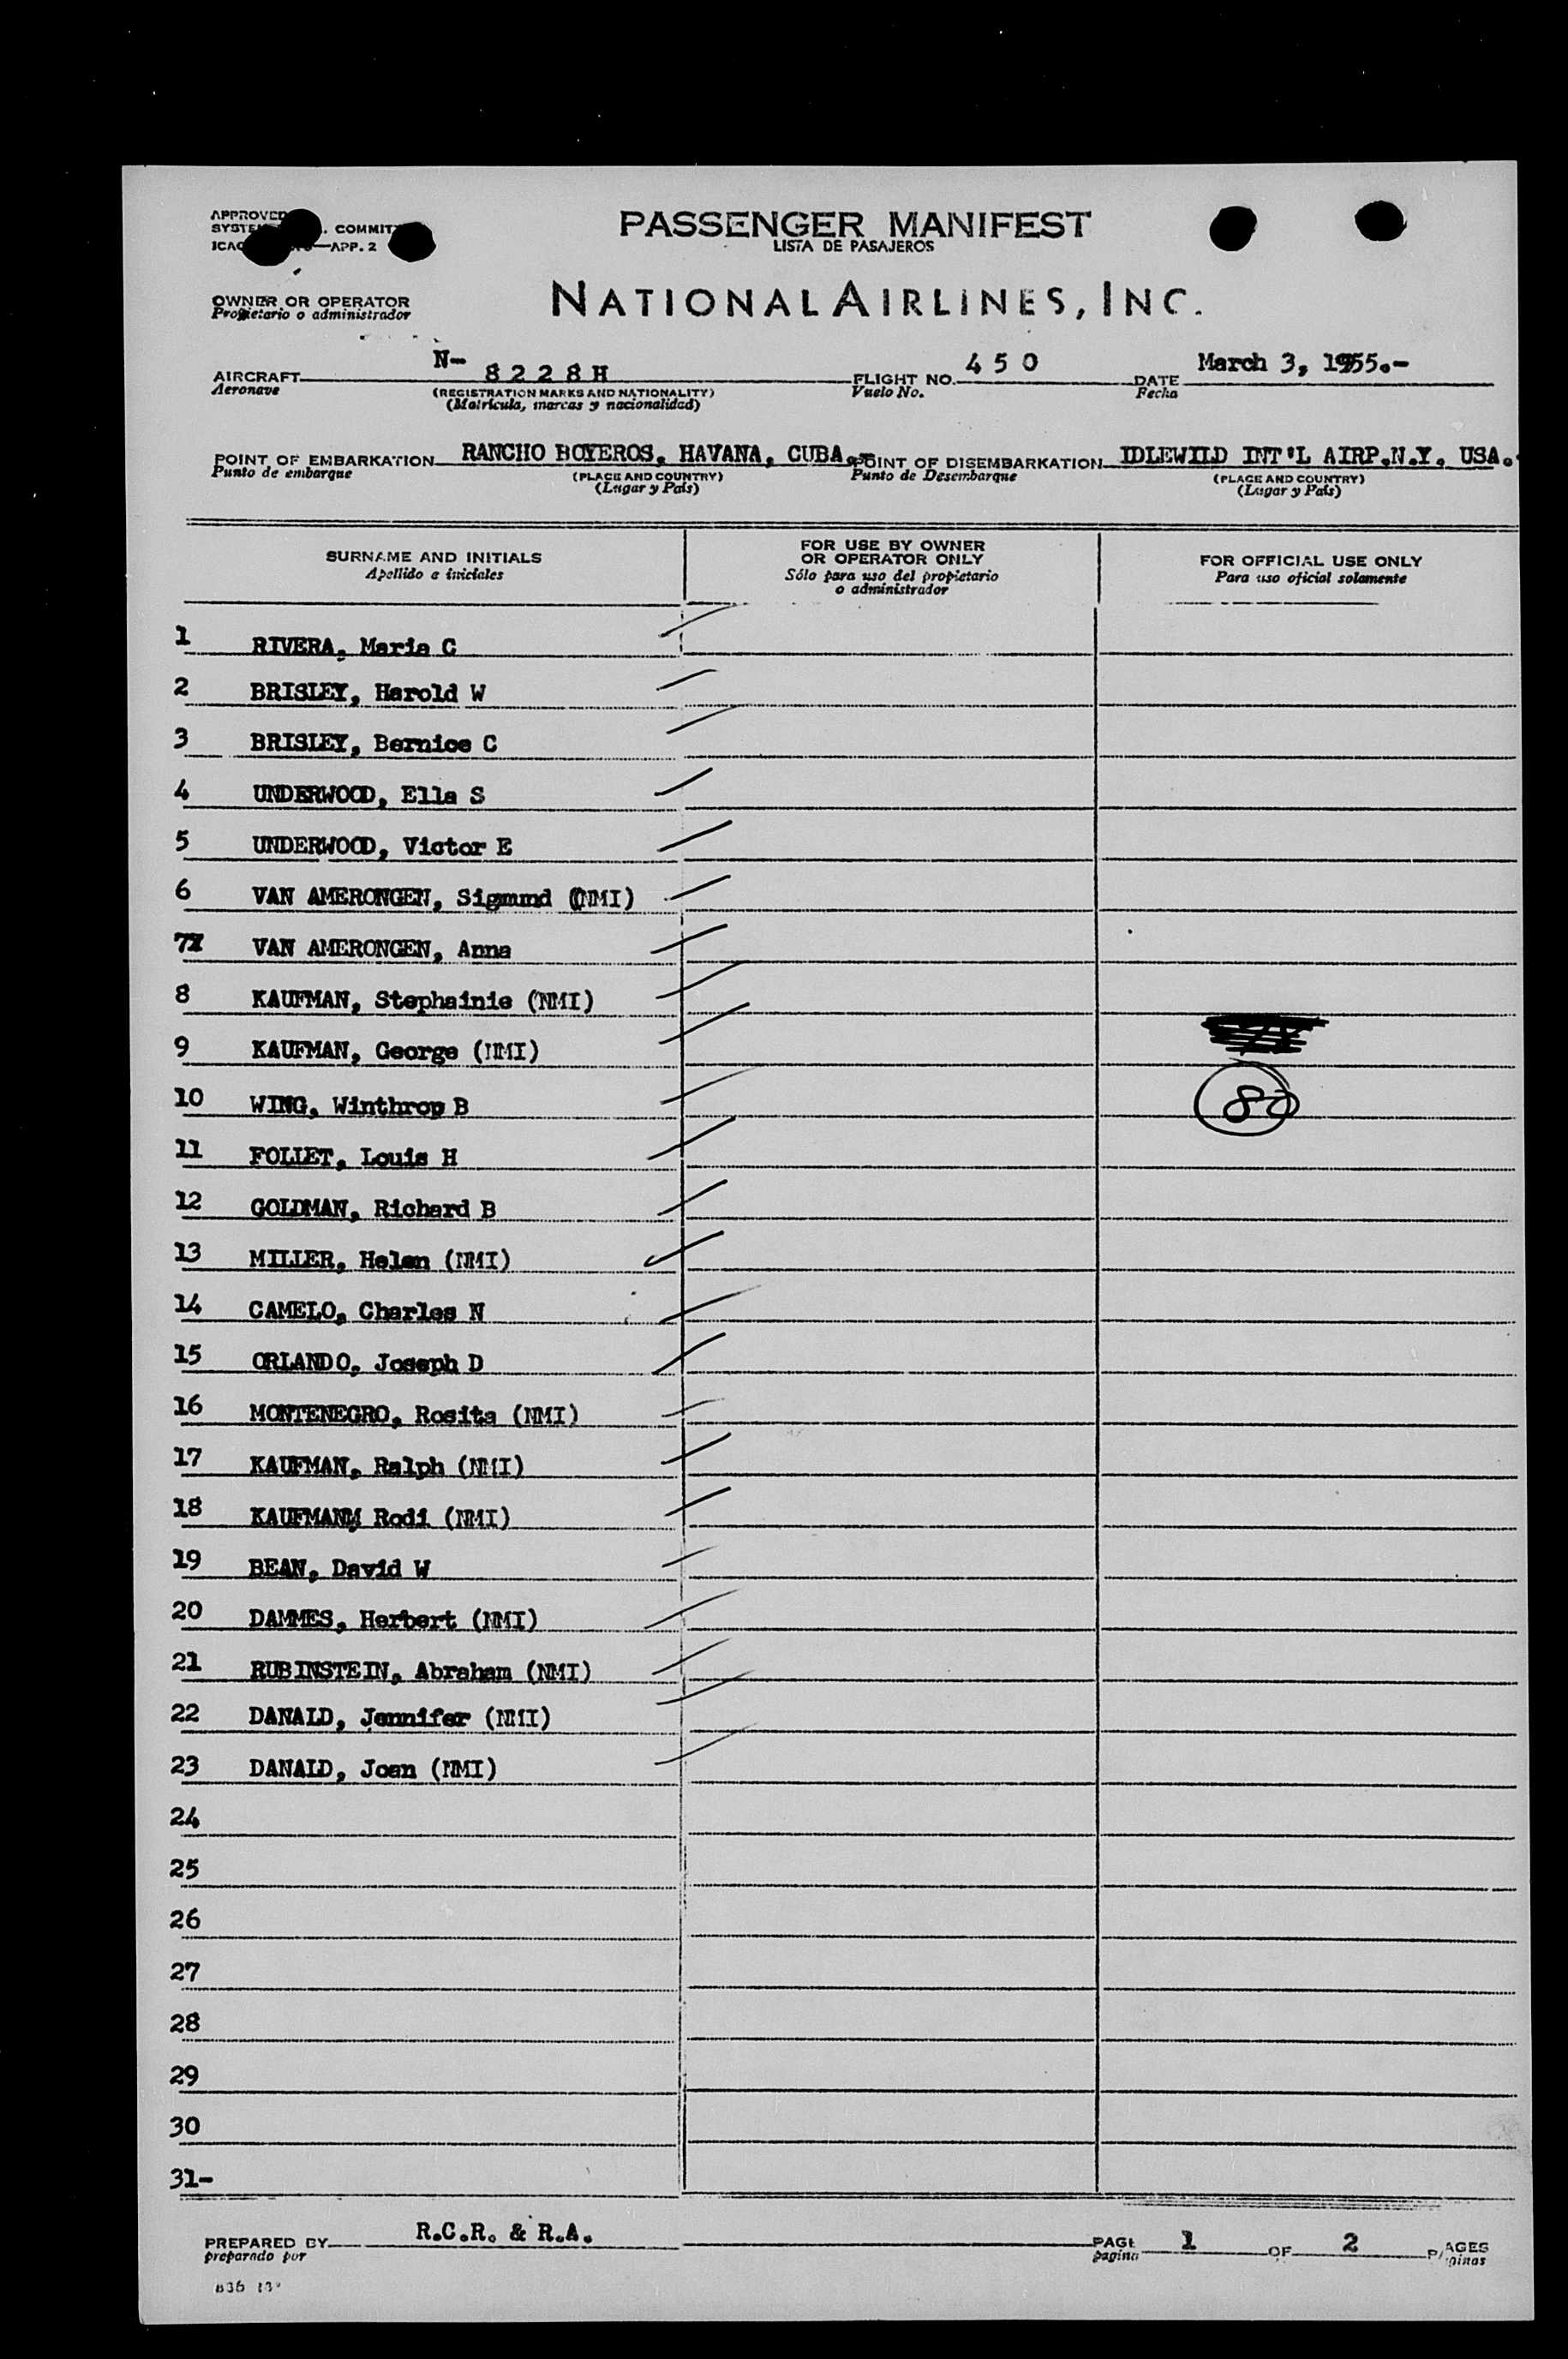 APPROVED
COMMIT
APP. 2
PASSENGER MANIFEST
LISTA DE PASAJEROS
OWNER OR OPERATOR
Propietario o administrador
NATIONAL AIRLINES, INC.
AIRCRAFT N- 8228H FLIGHT NO. 450 DATE March 3, 1955.-
Aeronave (REGISTRATION MARKS AND NATIONALITY) Vuelo No. Fecha
(Matrícula, marcas y nacionalidad)
POINT OF EMBARKATION RANCHO BOYEROS, HAVANA, CUBA.- POINT OF DISEMBARKATION IDLEWILD INT'L AIRP.N.Y. USA.
Punto de embarque (PLACE AND COUNTRY) Punto de Desembarque (PLACE AND COUNTRY)
(Lugar y País) (Lugar y País)
SURNAME AND INITIALS
Apellido e iniciales
FOR USE BY OWNER
OR OPERATOR ONLY
Sólo para uso del propietario
o administrador
FOR OFFICIAL USE ONLY
Para uso oficial solamente
1 RIVERA, Maria C
2 BRISLEY, Harold W
3 BRISLEY, Bernice C
4 UNDERWOOD, Ella S
5 UNDERWOOD, Victor E
6 VAN AMERONGEN, Sigmund (NMI)
7 VAN AMERONGEN, Anna
8 KAUFMAN, Stephainie (NMI)
9 KAUFMAN, George (NMI)
10 WING, Winthrop B 80
11 FOLLET, Louis H
12 GOLDMAN, Richard B
13 MILLER, Helen (NMI)
14 CAMELO, Charles N
15 ORLANDO, Joseph D
16 MONTENEGRO, Rosita (NMI)
17 KAUFMAN, Ralph (NMI)
18 KAUFMAN, Rodi (NMI)
19 BEAN, David W
20 DAMMES, Herbert (NMI)
21 RUBINSTEIN, Abraham (NMI)
22 DANALD, Jennifer (NMI)
23 DANALD, Joan (NMI)
24
25
26
27
28
29
30
31-
PREPARED BY R.C.R. & R.A. PAGE 1 OF 2 PAGES
preparado por pagina páginas